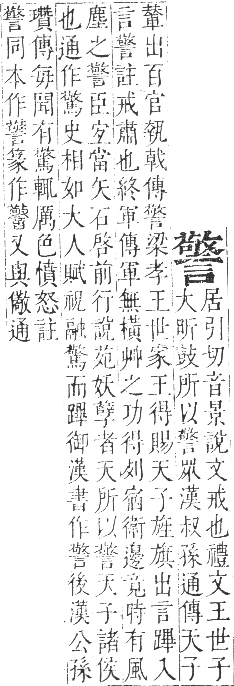 警
居引切音景說文戒也禮文王世子
大昕鼓所以警眾漢叔孫通傳天子
輦出百官執戟傳警梁孝王世家王得賜天子旌旗出言蹕入
言警註戒肅也終軍傳軍無橫艸之功得列宿衞邊竟時有風
塵之警臣宜當矢石啓前行說苑妖孽者天所以警天子諸侯
也通作驚史相如大人賦祝融驚而蹕御漢書作警後漢公孫
瓚傳每聞有驚輒厲色憤怒註
警同本作𧫶篆作警又與儆通